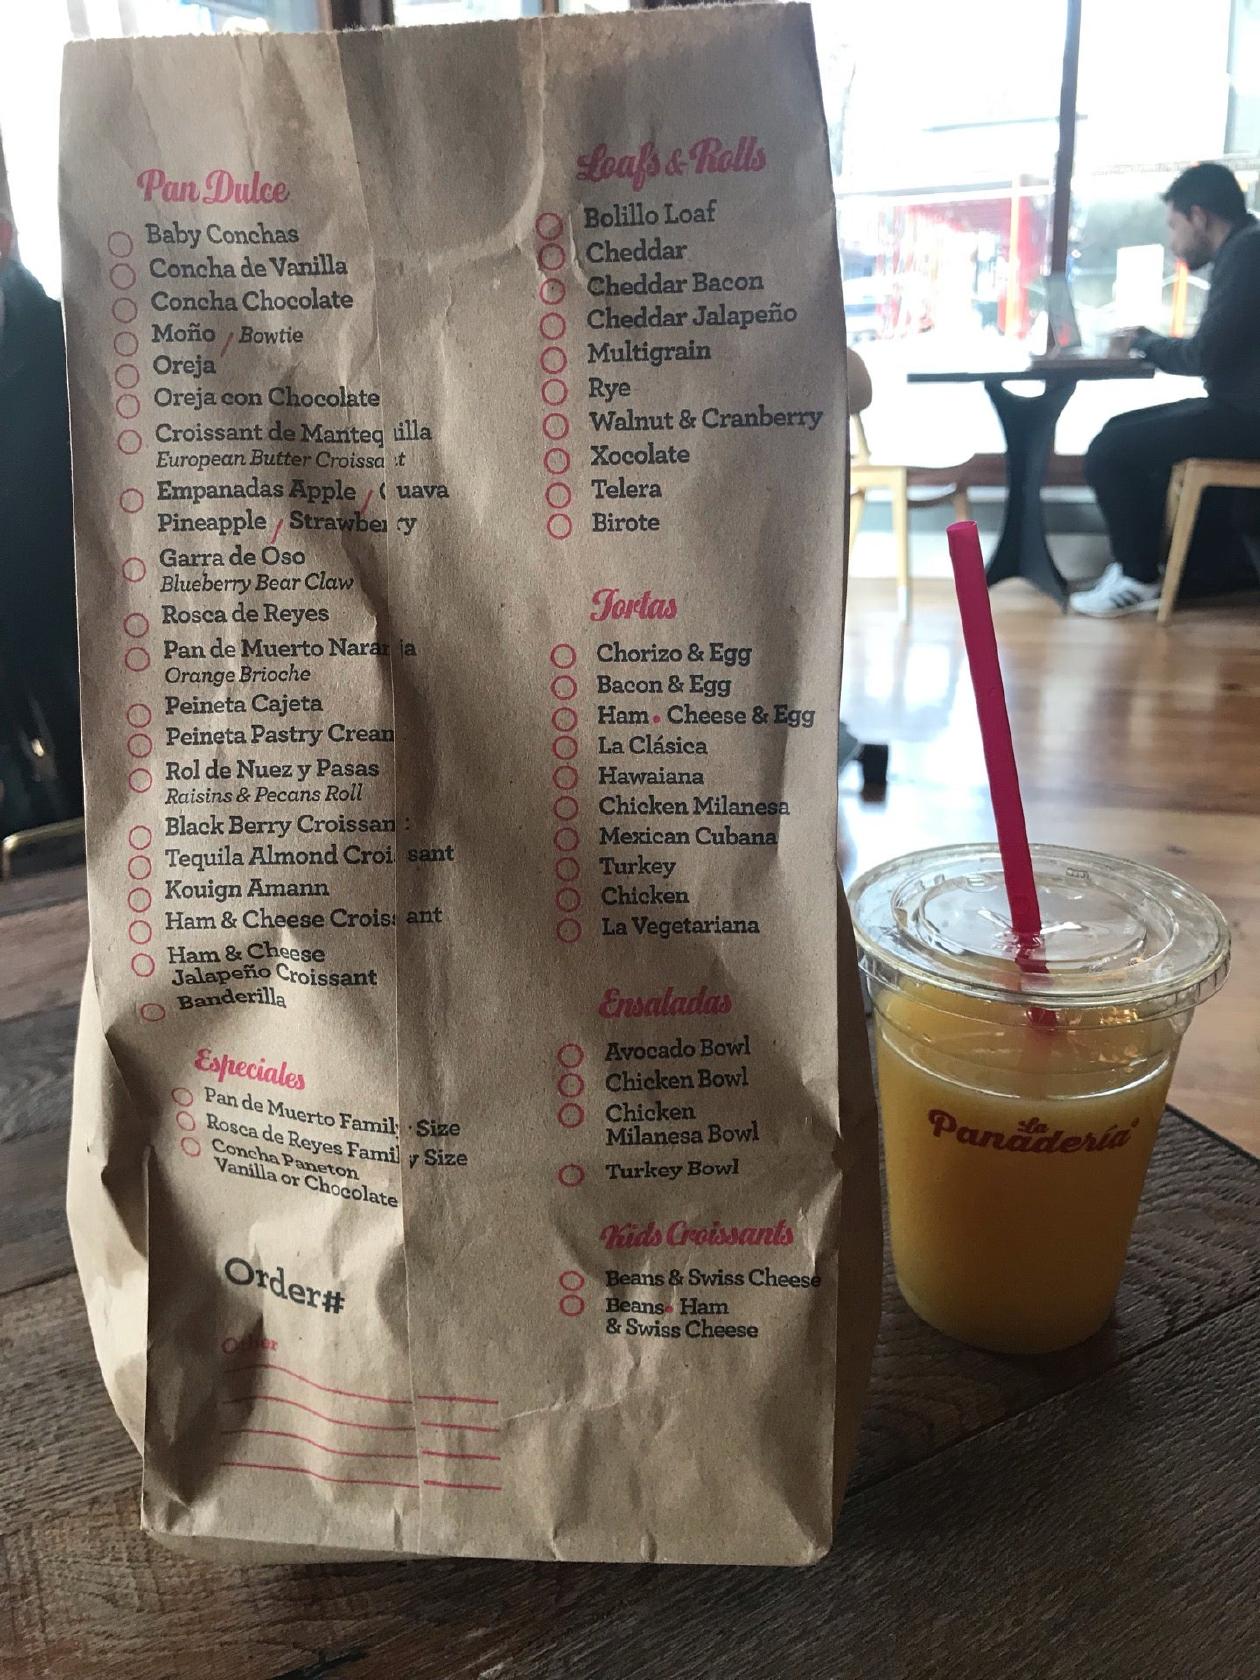 Pan Dulce
Baby Conchas
Concha de Vanilla
Concha Chocolate
Moño / Bowtie
Oreja
Oreja con Chocolate
Croissant de Mantequilla
European Butter Croissant
Empanadas Apple / Guava
Pineapple / Strawberry
Garra de Oso
Blueberry Bear Claw
Rosca de Reyes
Pan de Muerto Naranja
Orange Brioche
Peineta Cajeta
Peineta Pastry Cream
Rol de Nuez y Pasas
Raisins & Pecans Roll
Black Berry Croissant
Tequila Almond Croissant
Kouign Amann
Ham & Cheese Croissant
Ham & Cheese
Jalapeño Croissant
Banderilla
Especiales
Pan de Muerto Family Size
Rosca de Reyes Family Size
Concha Paneton
Vanilla or Chocolate
Order#
Other
Loafs & Rolls
Bolillo Loaf
Cheddar
Cheddar Bacon
Cheddar Jalapeño
Multigrain
Rye
Walnut & Cranberry
Xocolate
Telera
Birote
Tortas
Chorizo & Egg
Bacon & Egg
Ham • Cheese & Egg
La Clásica
Hawaiana
Chicken Milanesa
Mexican Cubana
Turkey
Chicken
La Vegetariana
Ensaladas
Avocado Bowl
Chicken Bowl
Chicken
Milanesa Bowl
Turkey Bowl
Kids Croissants
Beans & Swiss Cheese
Beans • Ham
& Swiss Cheese
La
Panadería